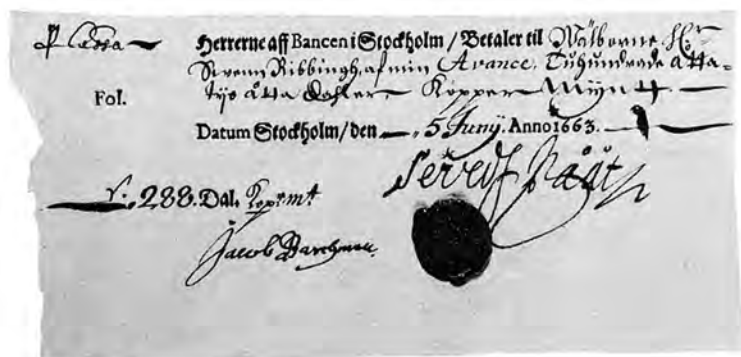 P Cassa Herrerne aff Bancen i Stockholm / Betaler til Wälborne Hr
Swenn Ribbingh, af min Avance. Tuhundrade åtta-
Fol. tijo åtta Dahler Kopper Myntt
Datum Stockholm / den 5 Junij. Anno 1663.
288. Dal. Kopr mt
Seved Bååt
Jacob